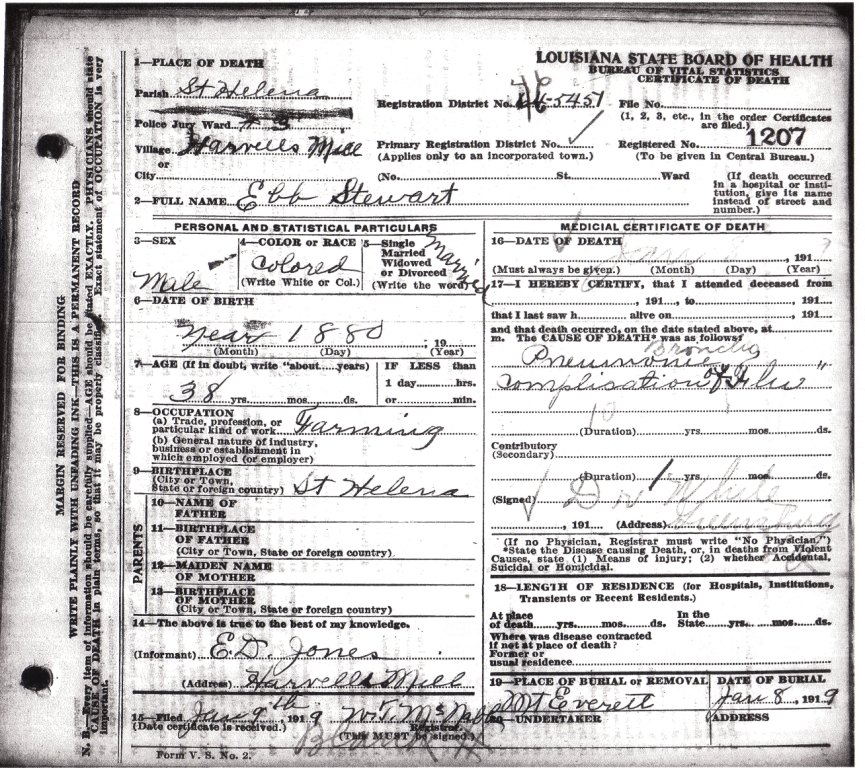 LOUISIANA STATE BOARD OF HEALTH
BUREAU OF VITAL STATISTICS
CERTIFICATE OF DEATH
1—PLACE OF DEATH
Parish St Helena
Police Jury Ward # 3
Village Harvells Mill
or
City
Registration District No. 46-5451 File No.
(1, 2, 3, etc., in the order Certificates are filed.)
Primary Registration District No. Registered No. 1207
(Applies only to an incorporated town.) (To be given in Central Bureau.)
(No. St. Ward (If death occurred in a hospital or institution, give its name instead of street and number.)
2—FULL NAME Ebb Stewart
PERSONAL AND STATISTICAL PARTICULARS
3—SEX
Male
4—COLOR or RACE
Colored
(Write White or Col.)
5—Single
Married
Widowed
or Divorced
(Write the word)
Married
6—DATE OF BIRTH
Year 1880 , 19
(Month) (Day) (Year)
7—AGE (If in doubt, write "about....years)
38 yrs. mos. ds.
IF LESS than
1 day hrs.
or min.
8—OCCUPATION
(a) Trade, profession, or
particular kind of work Farming
(b) General nature of industry,
business or establishment in
which employed (or employer)
9—BIRTHPLACE
(City or Town,
State or foreign country) St Helena
PARENTS
10—NAME OF
FATHER
11—BIRTHPLACE
OF FATHER
(City or Town, State or foreign country)
12—MAIDEN NAME
OF MOTHER
13—BIRTHPLACE
OF MOTHER
(City or Town, State or foreign country)
14—The above is true to the best of my knowledge.
(Informant) E.D. Jones
(Address) Harvells Mill
15—Filed Jan 9th 1919
(Date certificate is received.) Registrar.
(This MUST be signed.)
Form V. S. No. 2.
MEDICIAL CERTIFICATE OF DEATH
16—DATE OF DEATH
Jan , 191
(Must always be given.) (Month) (Day) (Year)
17—I HEREBY CERTIFY, that I attended deceased from
, 191 , to , 191
that I last saw h alive on , 191
and that death occurred, on the date stated above, at
m. The CAUSE OF DEATH* was as follows:
Broncho
Pneumonia
Complisation of Flu
(Duration) yrs. mos. ds.
Contributory
(Secondary)
(Duration) yrs. mos. ds.
(Signed) Dr White
, 191 (Address)
(If no Physician, Registrar must write "No Physician.")
*State the Disease causing Death, or, in deaths from Violent
Causes, state (1) Means of injury; (2) whether Accidental,
Suicidal or Homicidal.
18—LENGTH OF RESIDENCE (for Hospitals, Institutions,
Transients or Recent Residents.)
At place of death yrs. mos. ds. In the State yrs. mos. ds.
Where was disease contracted
if not at place of death?
Former or
usual residence
19—PLACE OF BURIAL or REMOVAL
Mt Everett
DATE OF BURIAL
Jan 8, 1919
20—UNDERTAKER
ADDRESS
MARGIN RESERVED FOR BINDING
WRITE PLAINLY WITH UNFADING INK—THIS IS A PERMANENT RECORD
N. B.—Every item of information should be carefully supplied—AGE should be stated EXACTLY. PHYSICIANS should state
CAUSE OF DEATH in plain terms, so that it may be properly classified. Exact statement of OCCUPATION is very
important.